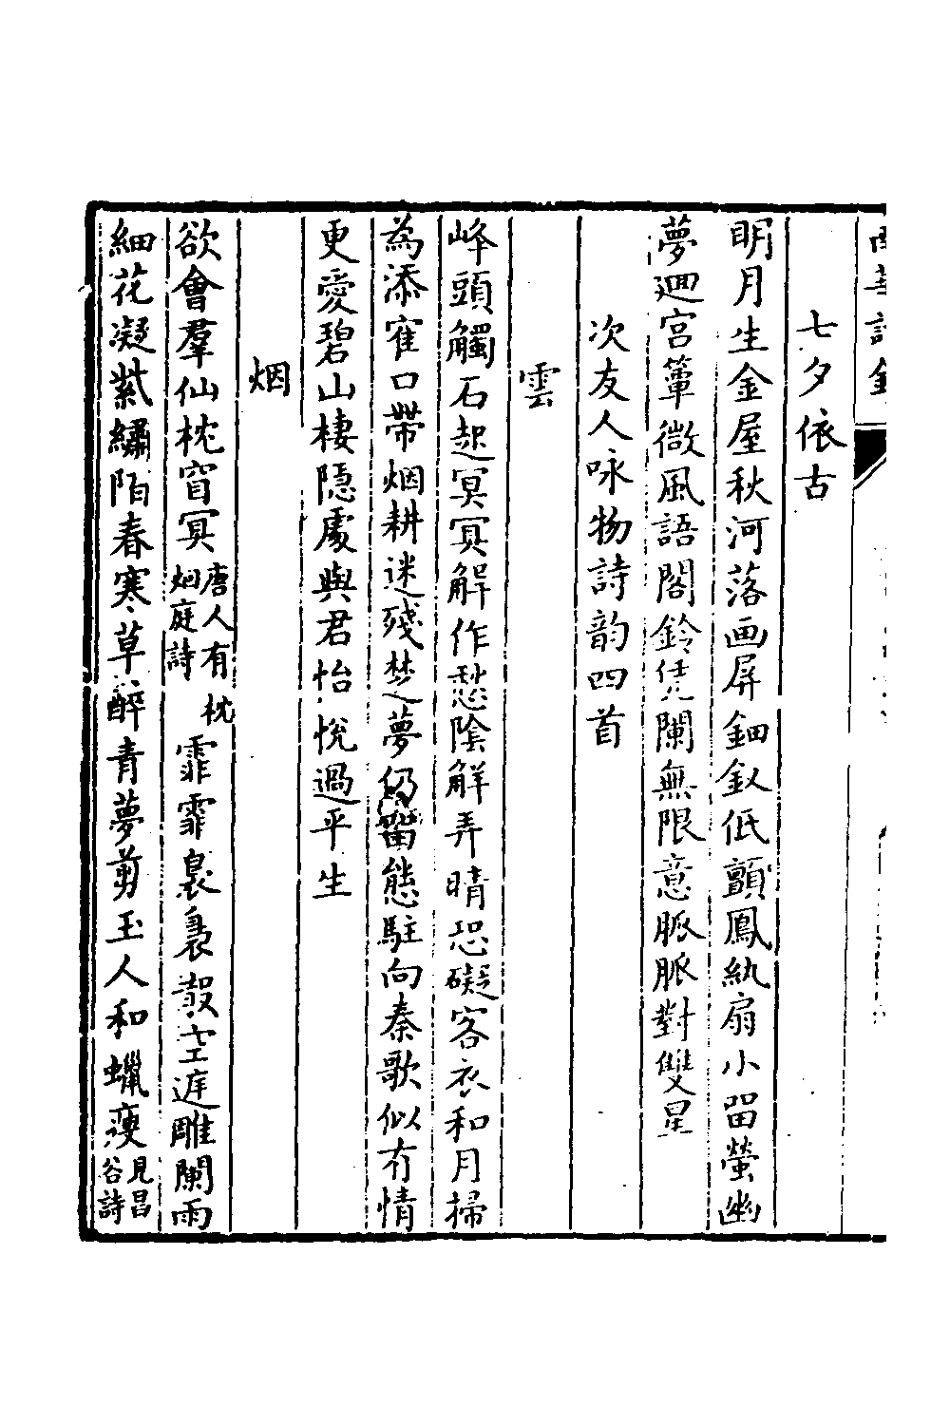 七夕依古
明月生金屋秋河落画屏鈿釵低顫鳳紈扇小畱螢幽
夢迴宮簟微風語閣鈴凭闌無限意脈脈對雙星
次友人咏物詩韵四首
雲
峰頭觸石起冥冥解作愁陰解弄晴恐礙客衣和月掃
為添窰口帶烟耕迷殘楚夢仍畱態駐向秦歌似有情
更愛碧山棲隱處與君怡悅過平生
烟
欲會羣仙枕窅冥唐人有枕
烟庭詩霏霏裊裊散空庭雕闌雨
細花凝紫繡陌春寒草醉青夢剪玉人和蠟瘦見昌
谷詩